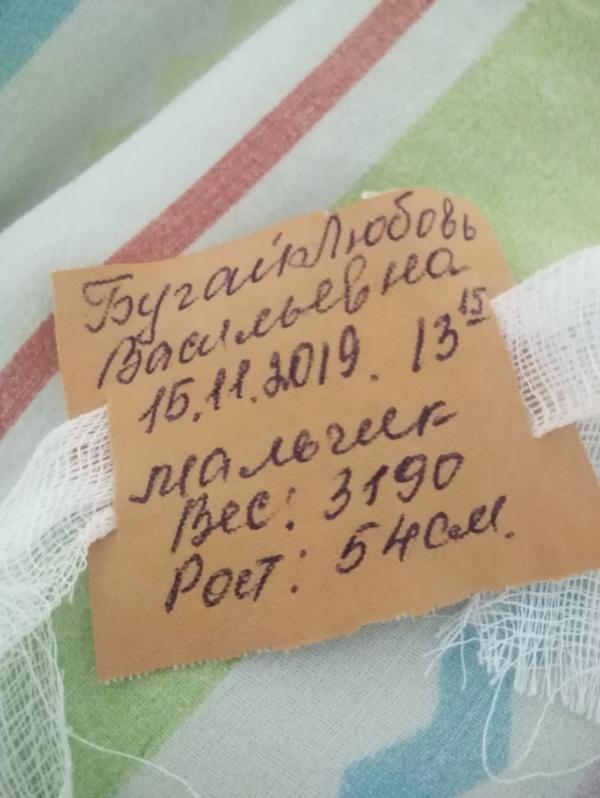 Бугаёк Любовь
Васильевна
15.11.2019. 13 15
мальчик
Вес: 3190
Рост: 54см.